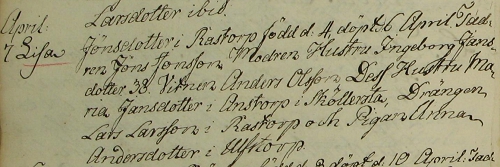 Larsdotter ibid.
April. Jönsdotter i Rastorp född d. 4, döpt d. 6 April Fad-
7 Lisa ren Jöns Jonsson, Modren Hustru Ingeborg Jans-
dotter 38. Vitnen Anders Olsson, Dess Hustru Ma-
ria Jansdotter i Anstorp i Sköllerata, Drängen
Lars Larsson i Rastorp och Pigan Anna
Andersdotter i
döpt d. 10 April Fad-